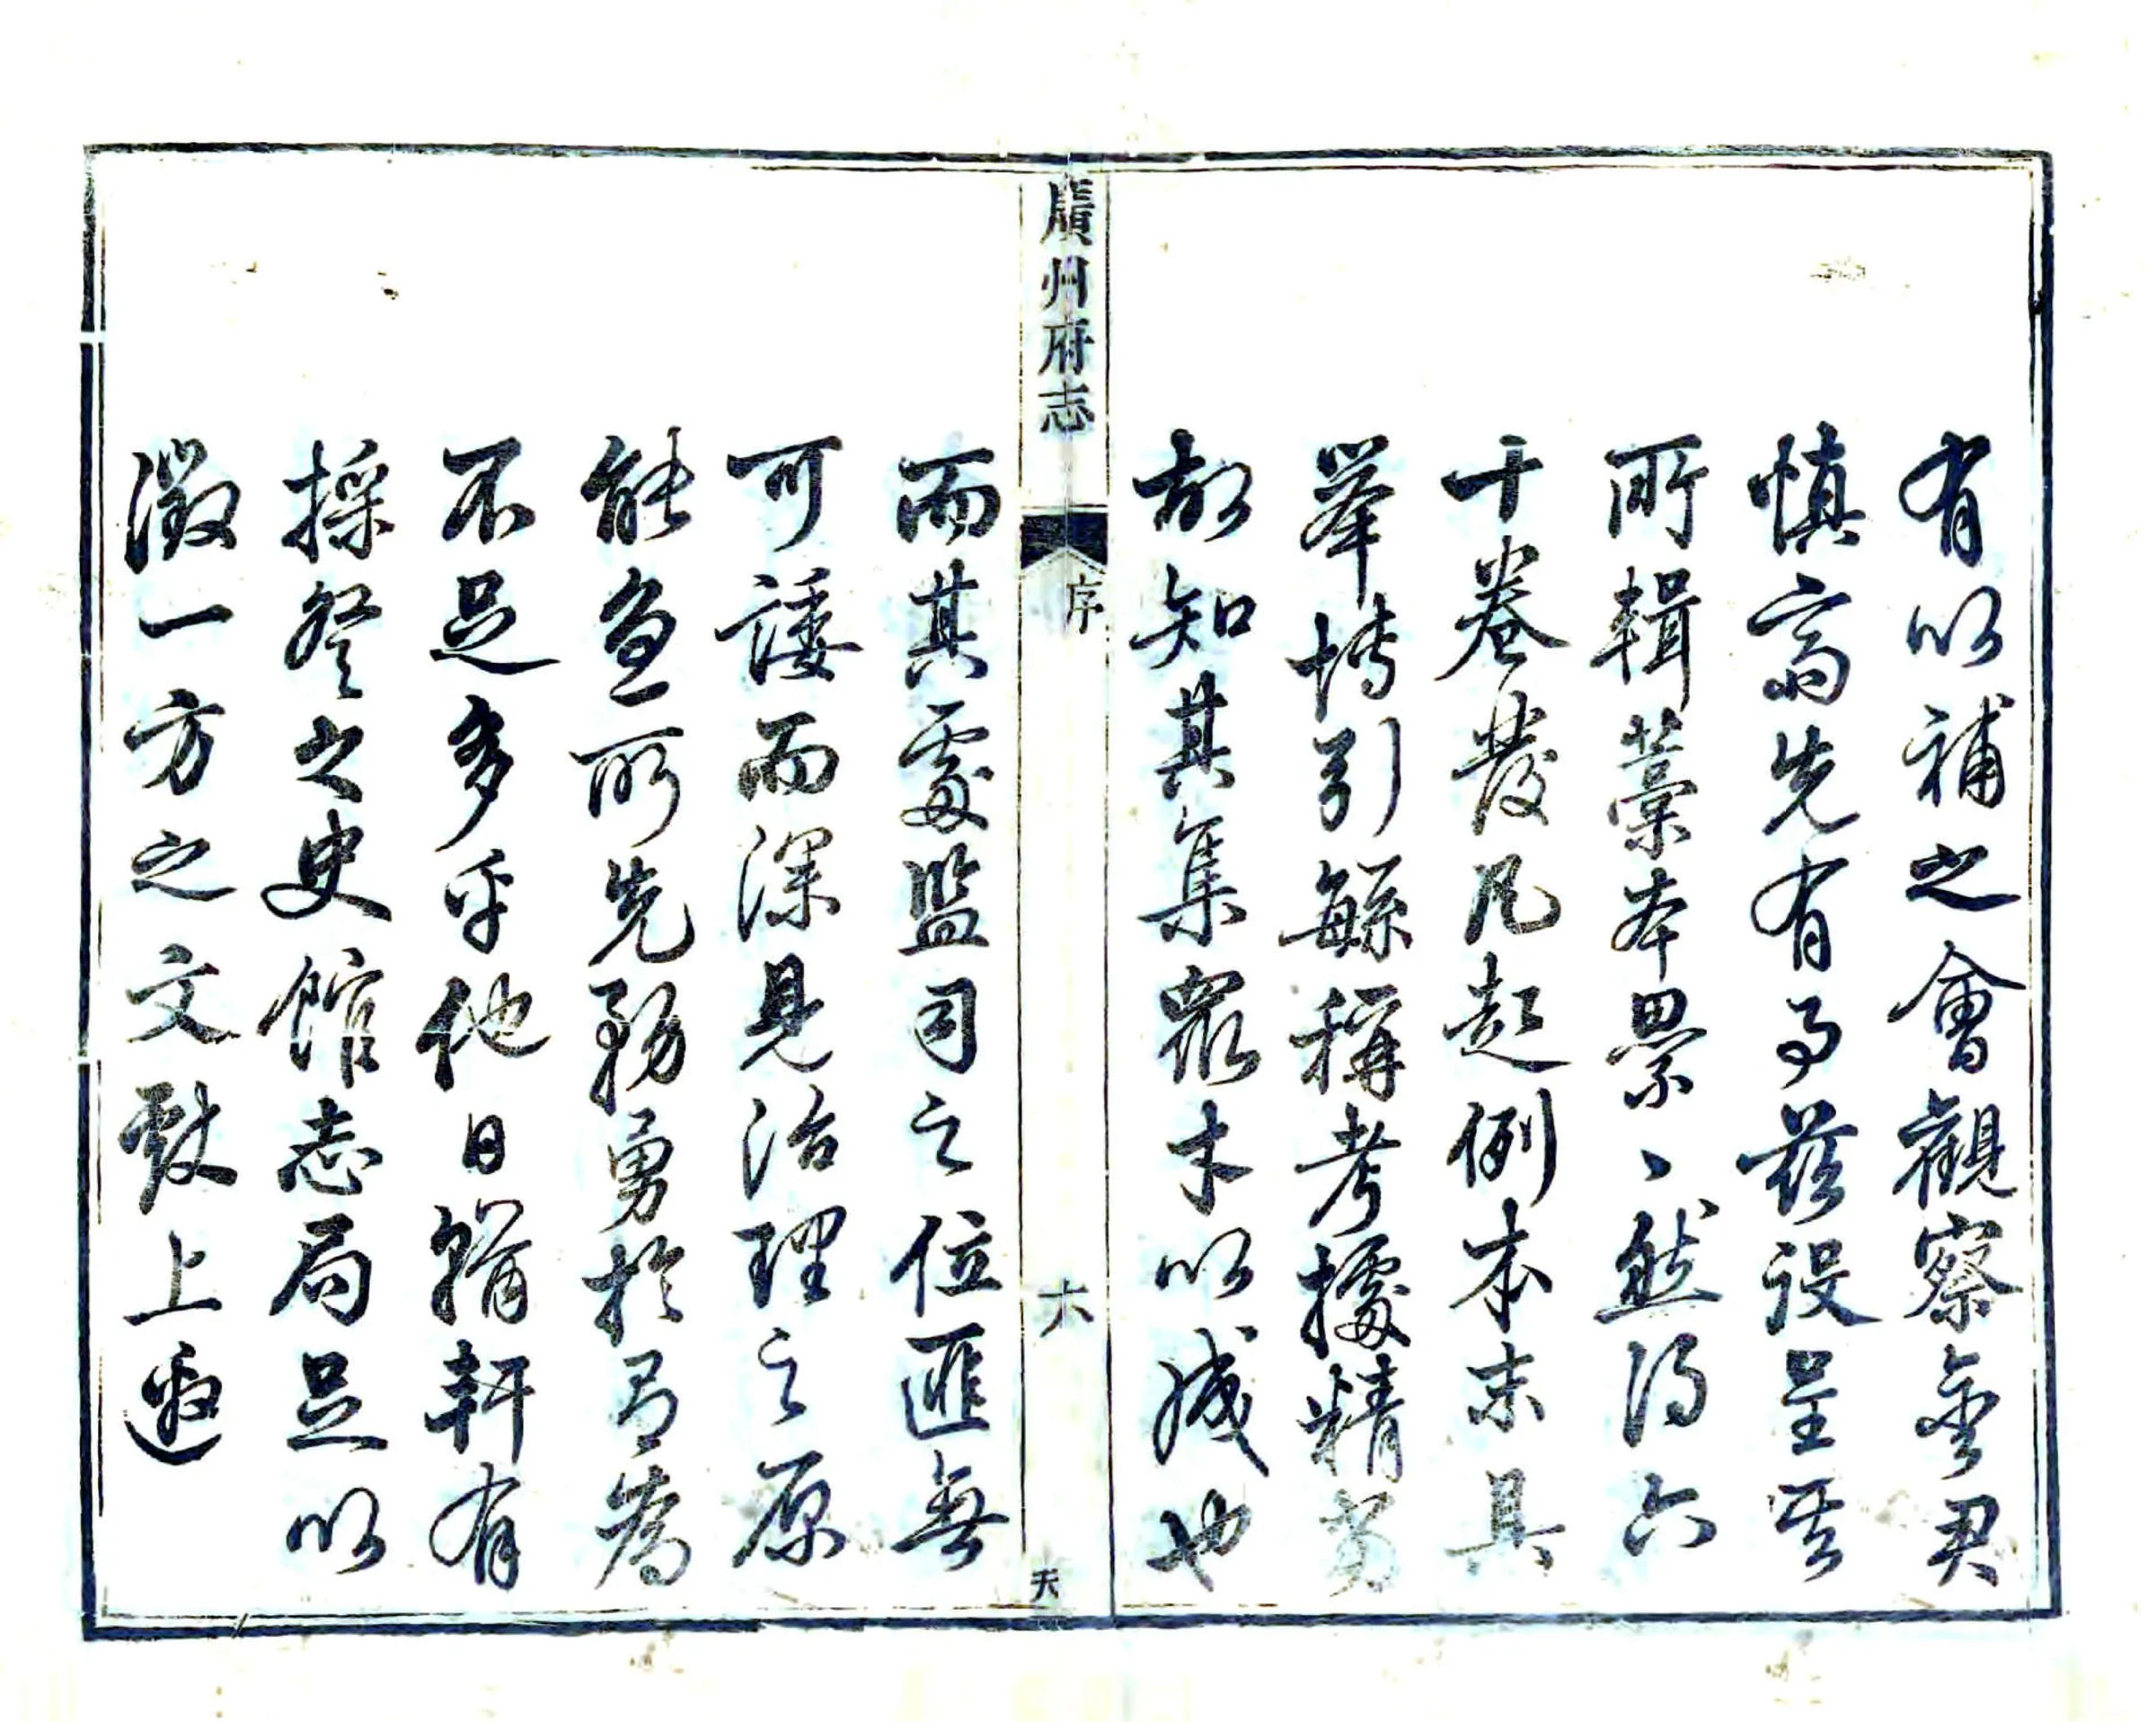 有以補之會觀察金君
慎齋先有事茲設呈其
所輯藁本纍〻然得六
十卷發凡起例本末具
舉博引繁稱考據精當
故知其集眾以成也
廣州府志
序
六
天
而其處監司之位匪無
可諉而深見治理之原
能急所先務勇於有為
不足多乎他日輶軒有
採登之史館志局足以
徵一方之文獻上邀